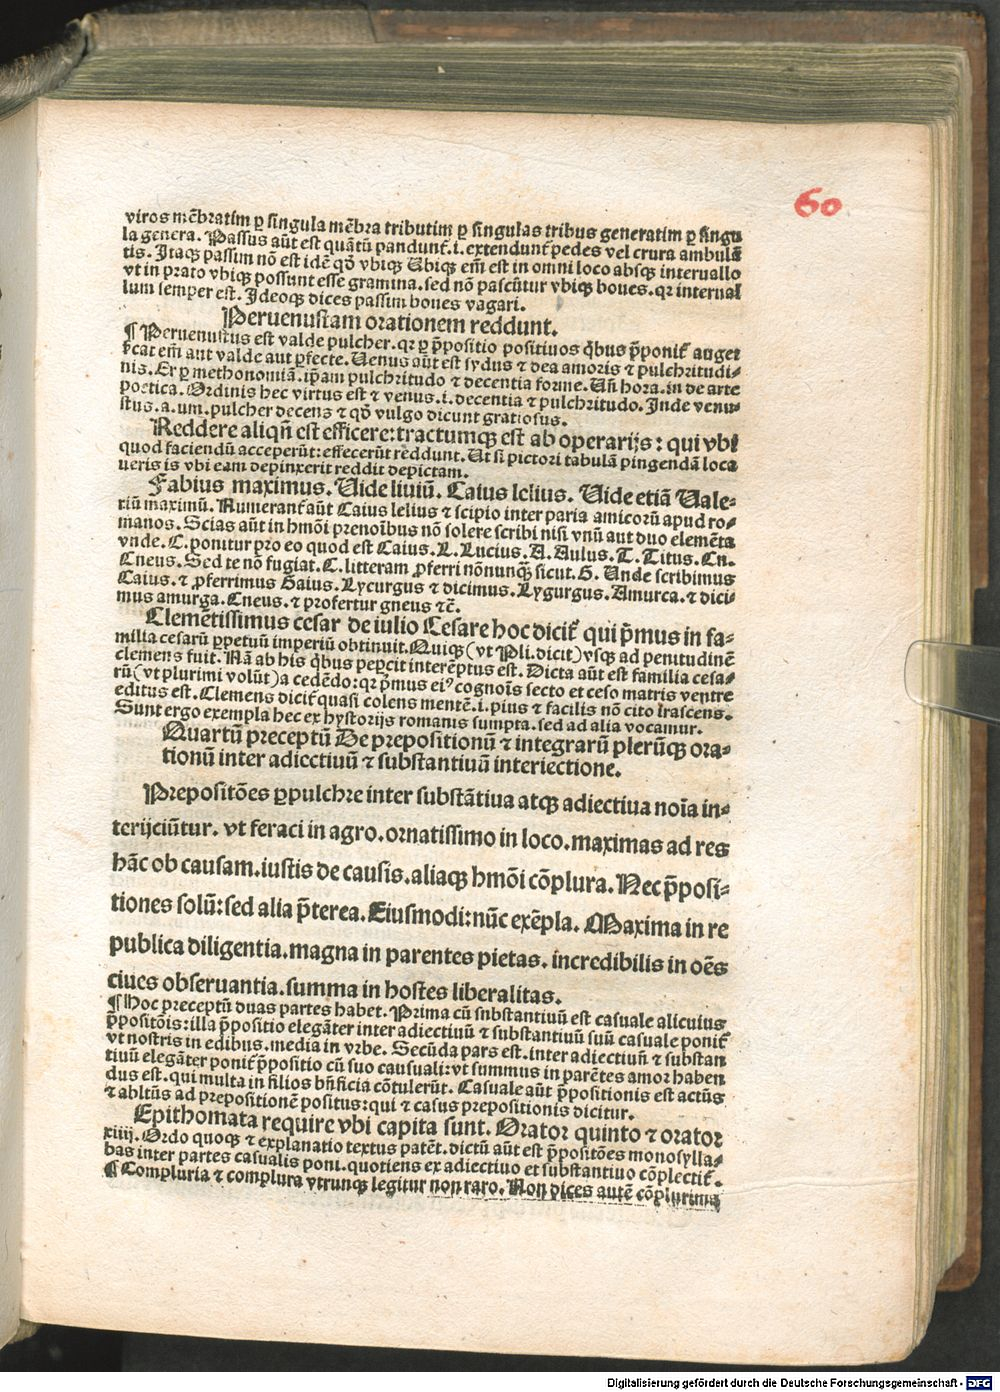 60
viros mēbratim ꝑ singula mēbra tributim ꝑ singulas tribus generatim ꝑ singu
la genera. Passus aūt est quātū pandunt᷑.i. extendunt᷑ pedes vel crura ambulā
tis. Itaqꝫ passim nō est idē qđ vbiqꝫ Ubiqꝫ em̄ est in omni loco absqꝫ interuallo
vt in prato vbiqꝫ possunt esse gramina. sed nō pascūtur vbiqꝫ boues. qꝛ interual
lum semper est. Ideoqꝫ dices passim boues vagari.
Peruenustam orationem reddunt.
¶ Peruenustus est valde pulcher. qꝛ ꝑ p̄positio positiuos q̇bus p̄ponit᷑ auget
ficat em̄ aut valde aut ꝑfecte. Uenus aūt est sydus ⁊ dea amoris ⁊ pulchritudi⸗
nis. Et ꝑ methonomiā. ip̄am pulchritudo ⁊ decentia forme. Uñ hora. in de arte
poetica. Ordinis hec virtus est ⁊ venus .i. decentia ⁊ pulchritudo. Inde venu⸗
stus. a. um. pulcher decens ⁊ qđ vulgo dicunt gratiosus.
Reddere aliqñ est efficere: tractumqꝫ est ab operarijs: qui vbi
quod faciendū acceperūt: effecerūt reddunt. Ut si pictori tabulā pingendā loca
ueris is vbi eam depinxerit reddit depictam.
Fabius maximus. Uide liuiū. Caius lelius. Uide etiā Uale⸗
riū maximū. Numerant᷑ aūt Caius lelius ⁊ scipio inter paria amicorū apud ro⸗
manos. Scias aūt in hmōi prenoībus nō solere scribi nisi vnū aut duo elemēta
vnde. C. ponitur pro eo quod est Caius. L. Lucius. A. Aulus. T. Titus. Cn.
Cneus. Sed te nō fugiat. C. litteram ꝓferri nōnunqꝫ sicut. G. Unde scribimus
Caius. ⁊ ꝓferrimus Gaius. Lycurgus ⁊ dicimus. Lygurgus. Amurca. ⁊ dici⸗
mus amurga. Cneus. ⁊ profertur gneus ⁊c̄.
Clemētissimus cesar de iulio Cesare hoc dicit᷑ qui p̄mus in fa⸗
milia cesarū ꝑpetuū imperiū obtinuit. Quiqꝫ (vt Pli. dicit) vsqꝫ ad penitudinē
clemens fuit. Nā ab his q̇bus pepercit interēptus est. Dicta aūt est familia cesa⸗
rū (vt plurimi volūt) a cedēdo: qꝛ p̄mus eiꝰ cognoīs secto et ceso matris ventre
editus est. Clemens dicit᷑ quasi colens mentē .i. pius ⁊ facilis nō cito irascens.
Sunt ergo exempla hec ex hystorijs romanis sumpta. sed ad alia vocamur.
Quartū preceptū De prepositionū ⁊ integrarū plerūqꝫ ora⸗
tionū inter adiectiuū ⁊ substantiuū interiectione.
Prepositōes ꝑpulchre inter substātiua atqꝫ adiectiua noīa in⸗
terijciūtur. vt feraci in agro. ornatissimo in loco. maximas ad res
hāc ob causam. iustis de causis. aliaqꝫ hmōi cōplura. Nec p̄posi⸗
tiones solū: sed alia p̄terea. Eiusmodi: nūc exēpla. Maxima in re
publica diligentia. magna in parentes pietas. incredibilis in oēs
ciues obseruantia. summa in hostes liberalitas.
¶ Hoc preceptū duas partes habet. Prima cū substantiuū est casuale alicuius
p̄positōis: illa p̄positio elegāter inter adiectiuū ⁊ substantiuū suū casuale ponit᷑
vt nostris in edibus. media in vrbe. Secūda pars est. inter adiectiuū ⁊ substan
tiuū elegāter ponit᷑ p̄positio cū suo causuali: vt summus in parētes amor haben
dus est. qui multa in filios bn̄ficia cōtulerūt. Casuale aūt p̄positionis est actūs
⁊ abltūs ad prepositionē positus: qui ⁊ casus prepositionis dicitur.
Epithomata require vbi capita sunt. Orator quinto ⁊ orator
xiiij. Ordo quoqꝫ ⁊ explanatio textus patēt. dictū aūt est p̄positōes monosylla⸗
bas inter partes casualis poni. quotiens ex adiectiuo et substantiuo cōplectit᷑.
¶ Compluria ⁊ complura vtrunqꝫ legitur non raro. Non dices autē cōplurima
Digitalisierung gefördert durch die Deutsche Forschungsgemeinschaft - DFG